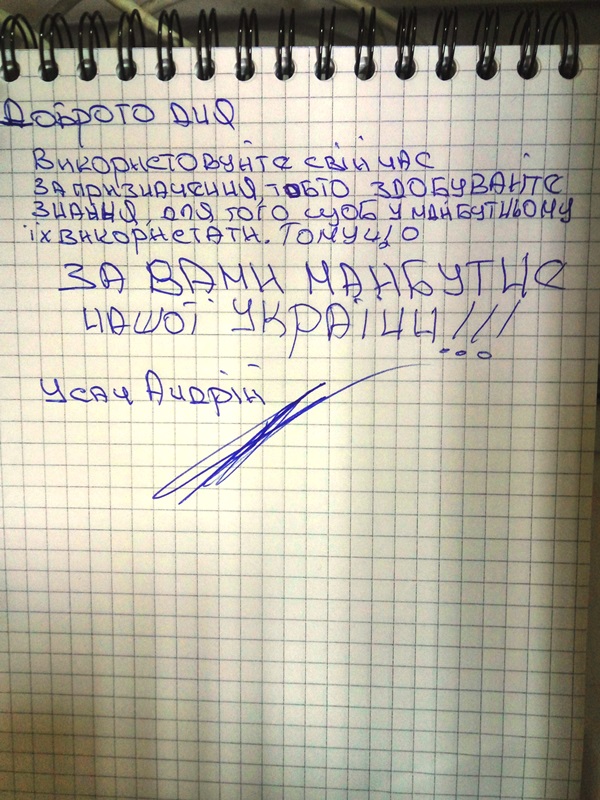 Доброго дня
Використовуйте свій час
за призначення, тобто здобувайте
знання, для того щоб у майбутньому
їх використати. Тому що
ЗА ВАМИ МАЙБУТНЄ
НАШОЇ УКРАЇНИ!!!
Усач Андрій